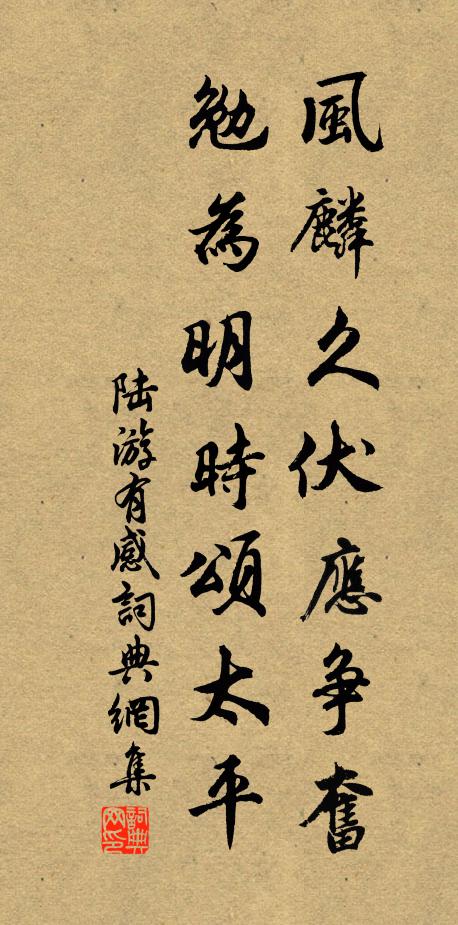 風麟久伏應争奮
勉為明時頌太平
陆游有感詞典網集
詞典网印